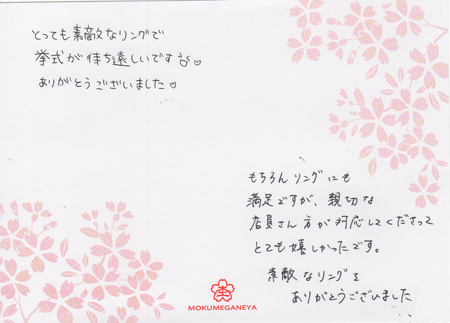 とっても素敵なリングで
挙式が待ち遠しいです♡
ありがとうございました♡
もちろんリングにも
満足ですが、親切な
店員さん方が対応してくださって
とても嬉しかったです。
素敵なリングを
ありがとうございました
MOKUMEGANEYA